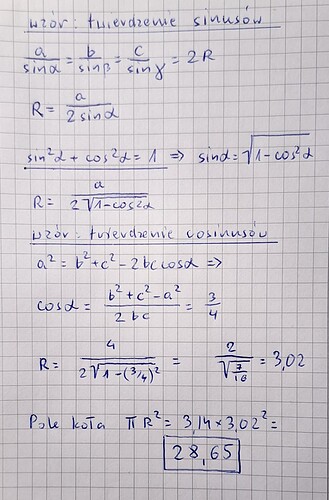 wzór: twierdzenie sinusów
a/sinα = b/sinβ = c/sinγ = 2R
R = a/2sinα
sin²α + cos²α = 1 => sinα = √1-cos²α
R = a/2√1-cos²α
wzór: twierdzenie cosinusów
a² = b² + c² - 2bc cosα =>
cosα = b² + c² - a²/2bc = 3/4
R = 4/2√1-(3/4)² = 2/√7/16 = 3,02
Pole koła πR² = 3,14 × 3,02² =
28,65